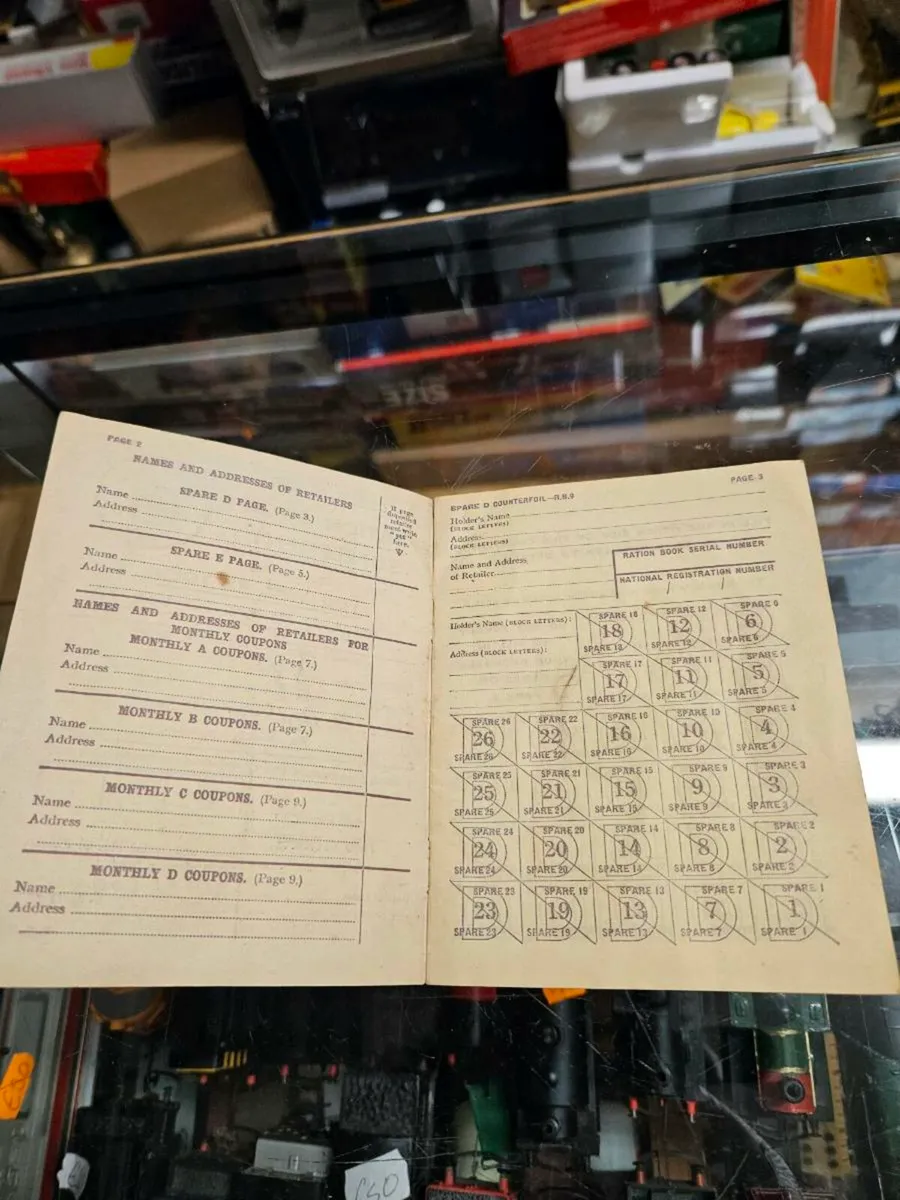 PAGE 2
NAMES AND ADDRESSES OF RETAILERS
SPARE D PAGE. (Page 3.)
Name
Address
SPARE E PAGE. (Page 5.)
Name
Address
NAMES AND ADDRESSES OF RETAILERS FOR
MONTHLY COUPONS
MONTHLY A COUPONS. (Page 7.)
Name
Address
MONTHLY B COUPONS. (Page 7.)
Name
Address
MONTHLY C COUPONS. (Page 9.)
Name
Address
MONTHLY D COUPONS. (Page 9.)
Name
Address
PAGE 3
SPARE D COUNTERFOIL—R.B.9
Holder's Name
(BLOCK LETTERS)
Address
(BLOCK LETTERS)
Name and Address
of Retailer
RATION BOOK SERIAL NUMBER
NATIONAL REGISTRATION NUMBER
Holder's Name (BLOCK LETTERS):
Address (BLOCK LETTERS):
SPARE 18 SPARE 12 SPARE 6
18 12 6
SPARE 18 SPARE 12 SPARE 6
SPARE 17 SPARE 11 SPARE 5
17 11 5
SPARE 17 SPARE 11 SPARE 5
SPARE 26 SPARE 22 SPARE 16 SPARE 10 SPARE 4
26 22 16 10 4
SPARE 26 SPARE 22 SPARE 16 SPARE 10 SPARE 4
SPARE 25 SPARE 21 SPARE 15 SPARE 9 SPARE 3
25 21 15 9 3
SPARE 25 SPARE 21 SPARE 15 SPARE 9 SPARE 3
SPARE 24 SPARE 20 SPARE 14 SPARE 8 SPARE 2
24 20 14 8 2
SPARE 24 SPARE 20 SPARE 14 SPARE 8 SPARE 2
SPARE 23 SPARE 19 SPARE 13 SPARE 7 SPARE 1
23 19 13 7 1
SPARE 23 SPARE 19 SPARE 13 SPARE 7 SPARE 1